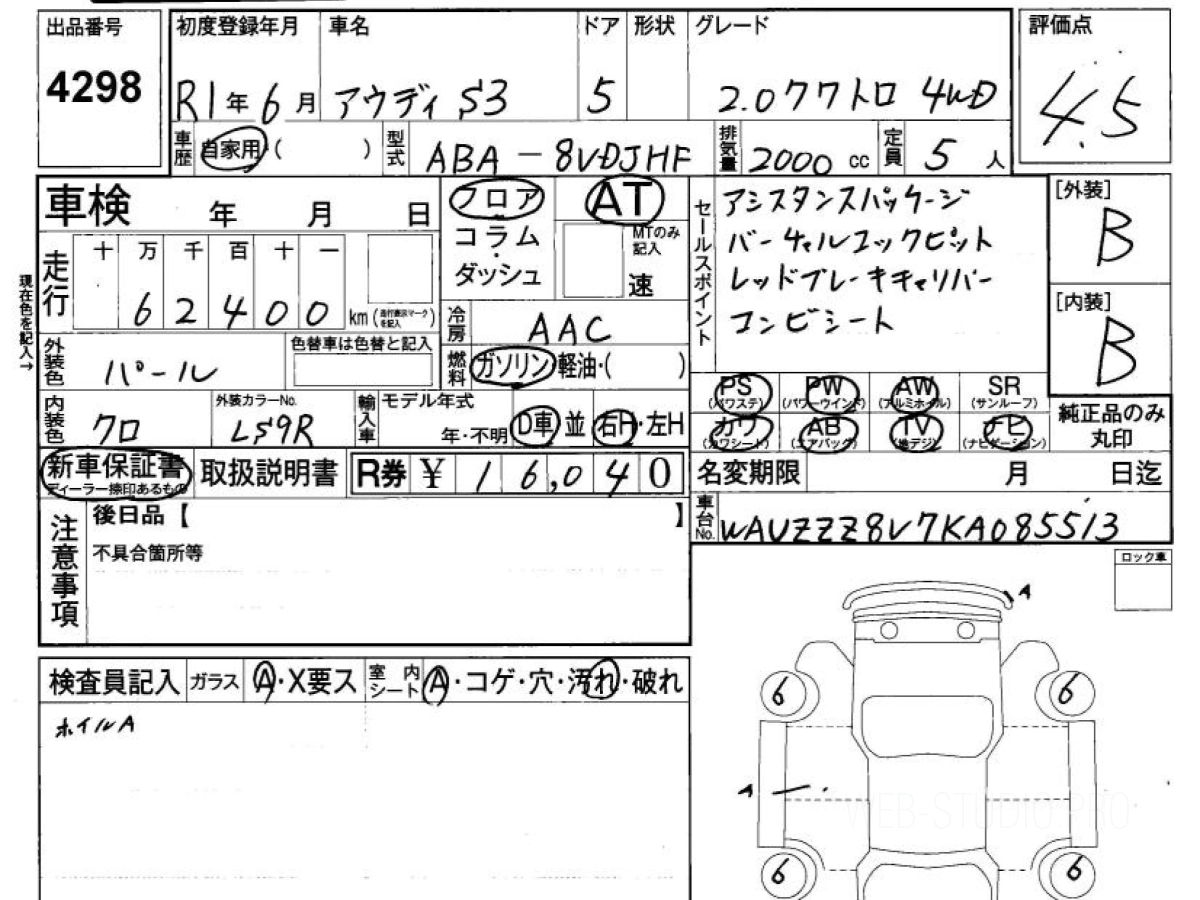 出品番号
4298
初度登録年月
R1年6月
車名
アウディ S3
ドア
5
形状
グレード
2.0クワトロ 4WD
評価点
4.5
車歴
自家用 ( )
型式
ABA-8VDJHF
排気量
2000 cc
定員
5 人
車検 年 月 日
走行
十 万 千 百 十 一
6 2 4 0 0 km (走行表示マークを記入)
現在色を記入→
フロア
コラム・
ダッシュ
AT
MTのみ記入
速
冷房
AAC
燃料
ガソリン・軽油・( )
セールスポイント
アシスタンスパッケージ
バーチャルコックピット
レッドブレーキキャリパー
コンビシート
[外装]
B
[内装]
B
外装色
パール
色替車は色替と記入
内装色
クロ
外装カラーNo.
LS9R
輸入車
モデル年式
年・不明
D車 並 右H・左H
PS (パワステ)
PW (パワーウインド)
AW (アルミホイル)
SR (サンルーフ)
カワ (カワシート)
AB (エアバッグ)
TV (地デジ)
ナビ (ナビゲーション)
純正品のみ
丸印
新車保証書
ディーラー捺印あるもの
取扱説明書
R券 ¥ 1 6,0 4 0
名変期限 月 日迄
車台No.
WAUZZZ8V7KA085513
注意事項
後日品【 】
不具合箇所等
ロック車
A
6
6
A
6
6
検査員記入
ガラス
A・X要ス
室内シート
A・コゲ・穴・汚れ・破れ
ホイルA
WEB-STUDIO.PRO